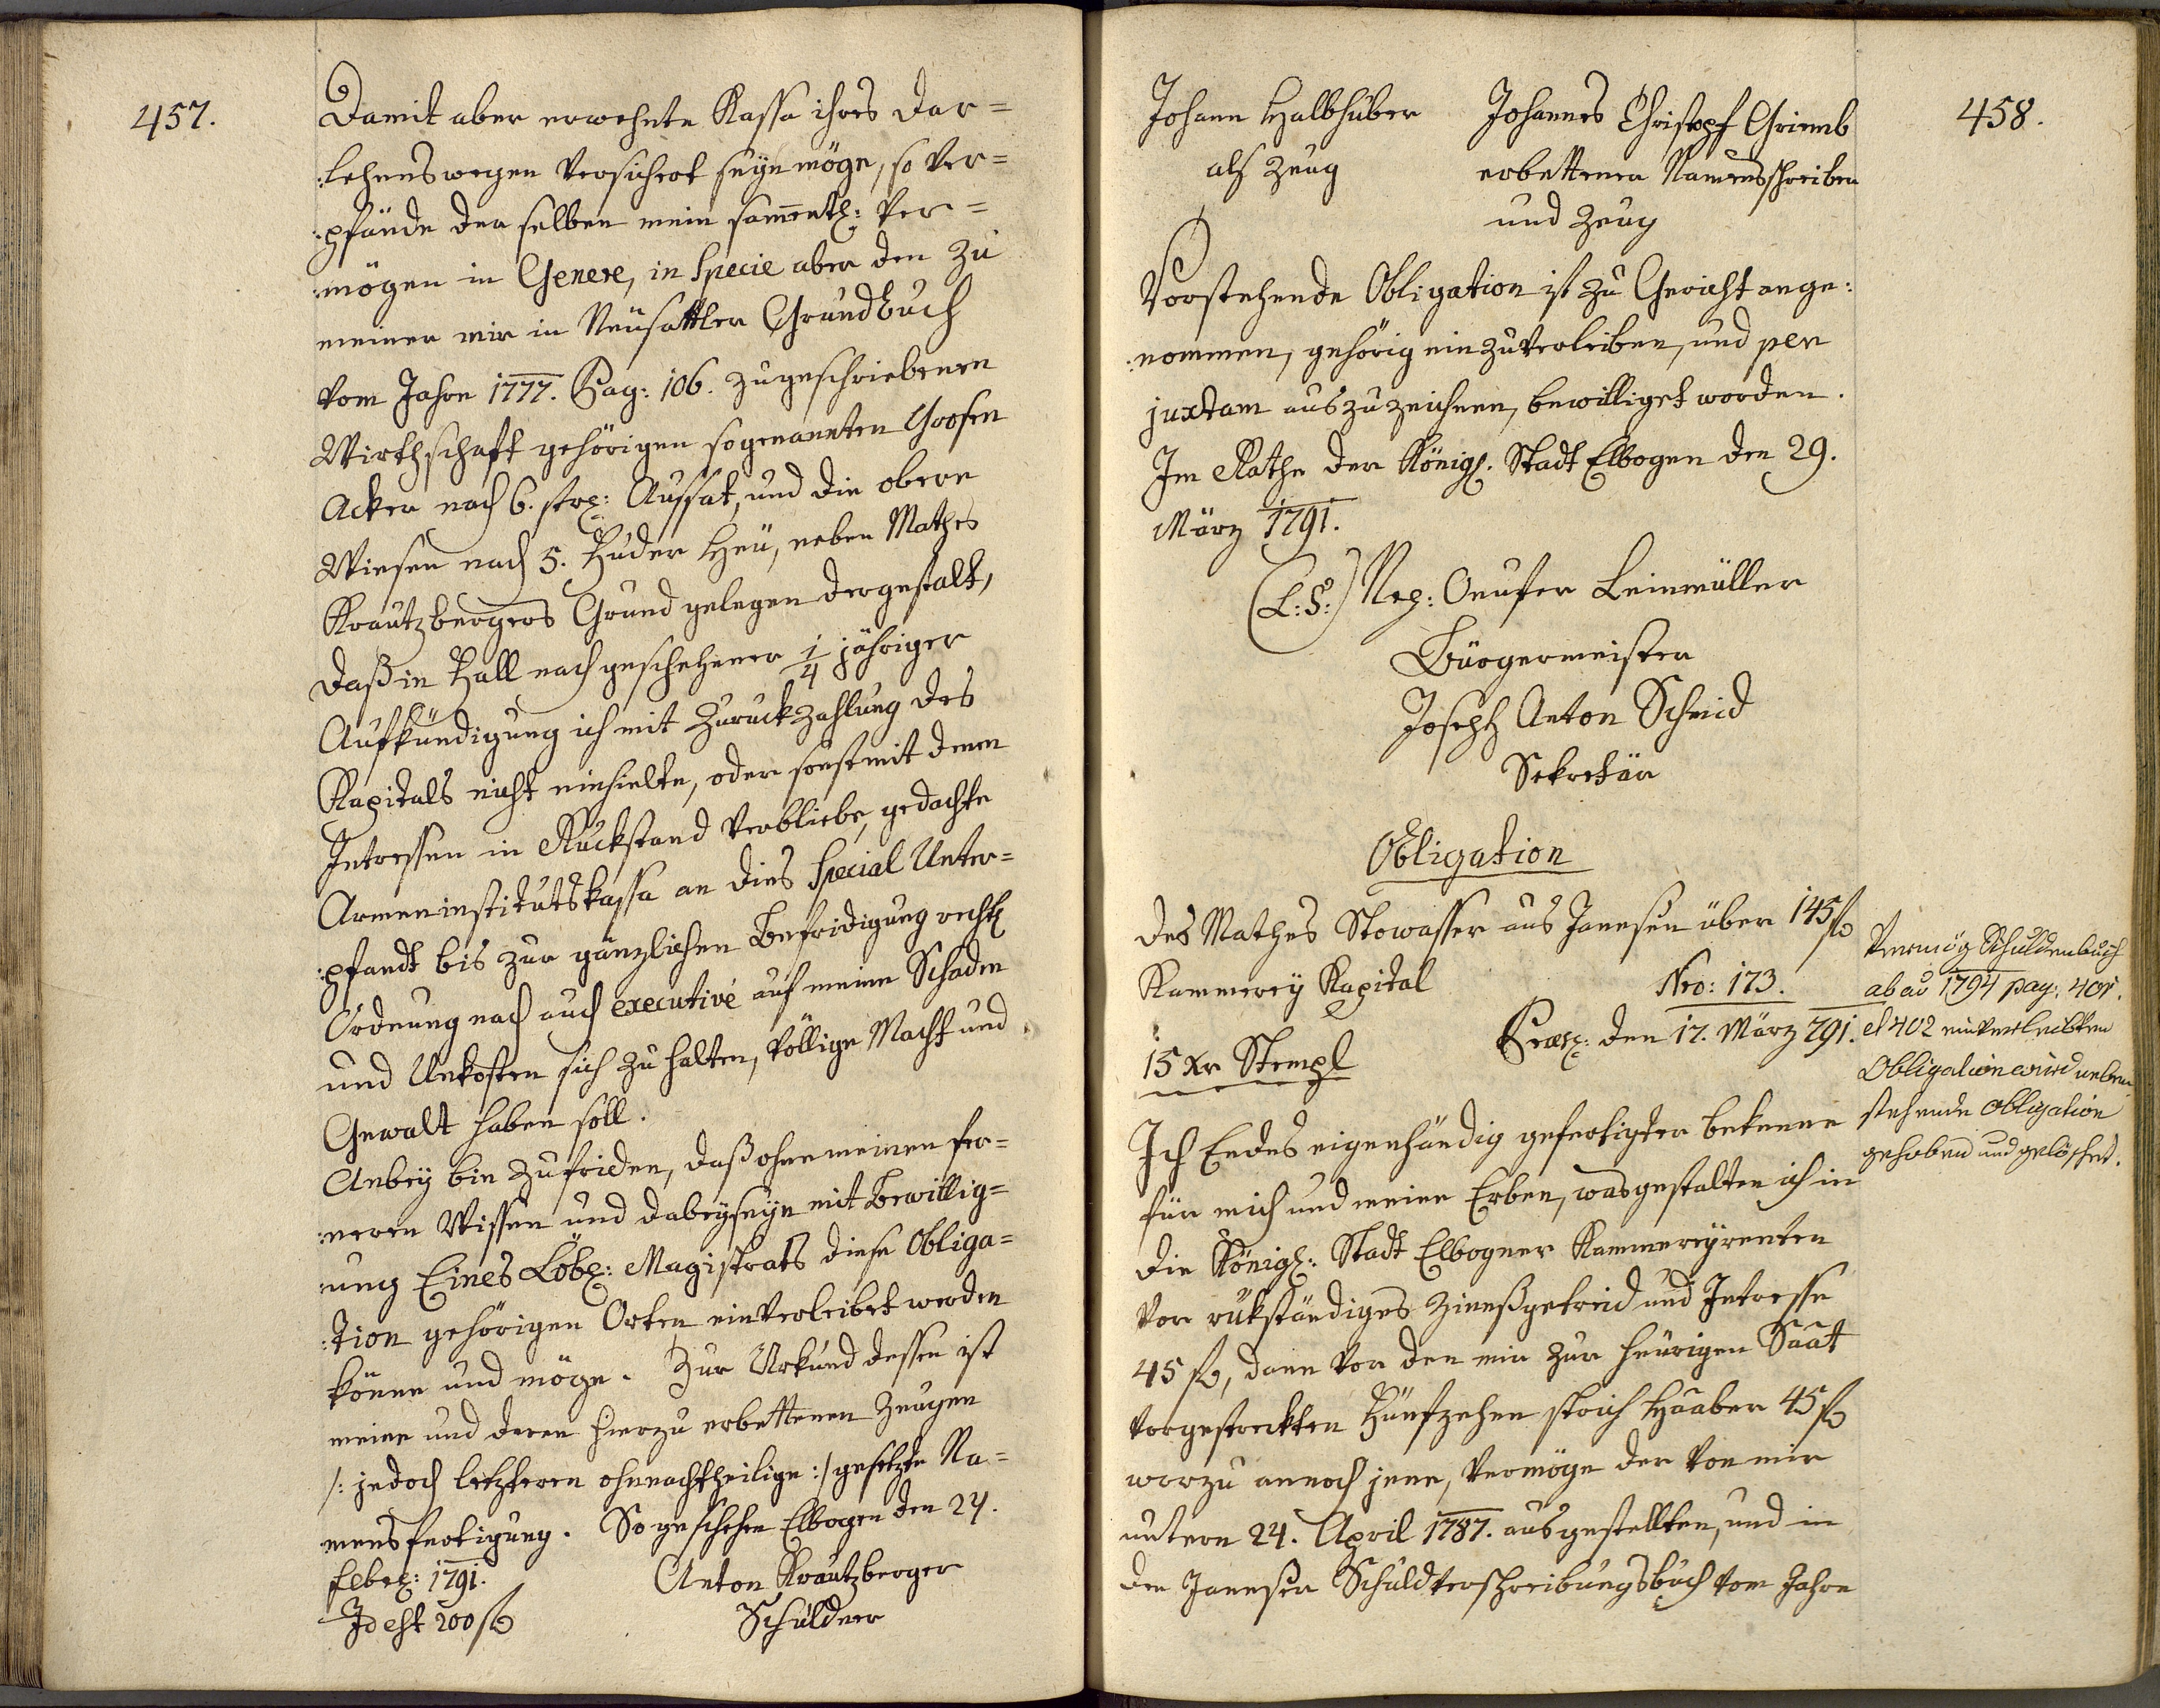 457.
Damit aber erwehnte Kassa ihres Dar=
:lehenswegen versichert seÿn möge, so ver=
:pfände der selben mein sammentl: Ver=
:mögen in Genere, in Specie aber den zu
meiner mir in Neusattler Grundbuch
vom Jahre 1777. Pag: 106. zugeschriebenen
Wirthschaft gehörigen sogenannten Grosen
Acker nach 6. str: Aussat, und die obere
Wiesen nach 5. Fuder Heü, neben Mathes
Krautzbergers Grund gelegen dergestalt,
daß in Fall nach geschehener 1/4 jähriger
Aufkündigung ich mit Zuruckzahlung des
Kapitals nicht einhielte, oder sonst mit denen
Intressen in Ruckstand verbliebe, gedachte
Armeninstitutskassa an dies Special Unter=
:pfandt bis zur gänzlichen Befridigung rechtl
Ordnung nach auch executivé auf meine Schaden
und Unkosten sich zu halten, völlige Macht und
Gewalt haben soll.
Anbeÿ bin zufriden, daß ohne meinen fer=
:neren Wissen und dabeÿseÿn mit Bewillig=
:ung Eines Löbl: Magistrats diese Obliga=
:tion gehörigen Orten einverleibet werden
könne und möge. Zur Urkund dessen ist
meine und deren hierzu erbettenen Zeugen
/: jedoch letzteren ohnnachtheilige :/ gesetzte Na=
mensfertigung. So geschehen Elbogen den 24.
Febr: 1791.
Anton Krautzberger
Id est 200 fl
Schuldner
458.
Johann Halbhuber
Johannes Christopf Grimb
als Zeug
erbettener Namensschreiber
und Zeug
Vorstehende Obligation ist zu Gericht ange:
:nommen, gehörig einzuverleiben, und per
juxtam auszuzeichnen, bewilliget worden.
Im Rathe der Königl. Stadt Elbogen den 29.
März 1791.
(L:S:) Nep: Onufer Leinmüller
Bürgermeister
Joseph Anton Schmid
Sekretär
Obligation
des Mathes Stowasser aus Janesen über 145 fl
Kammereÿ Kapital
Nro: 173.
15 Xr Stempl
Præs: den 17. März 791.
Vermög Schuldenbuch
ab ao 1794 pag: 401.
et 402 einverleibten
Obligation wird neben
stehende Obligation
gehoben und gelöschet.
Ich Endes eigenhändig gefertigter bekenne
für mich und meine Erben, wasgestalten ich in
die Königl: Stadt Elbogner Kammereÿrenten
vor rükständiges Zinnßgetreid und Intresse
45 fl, dann vor den mir zur heürigen Saat
vorgestreckten Fünfzehen strich Haaber 45 fl
worzu annoch jene, vermöge der von mir
untern 24. April 1787. ausgestellten, und in
den Janesser Schuldverschreibungsbuch vom Jahre